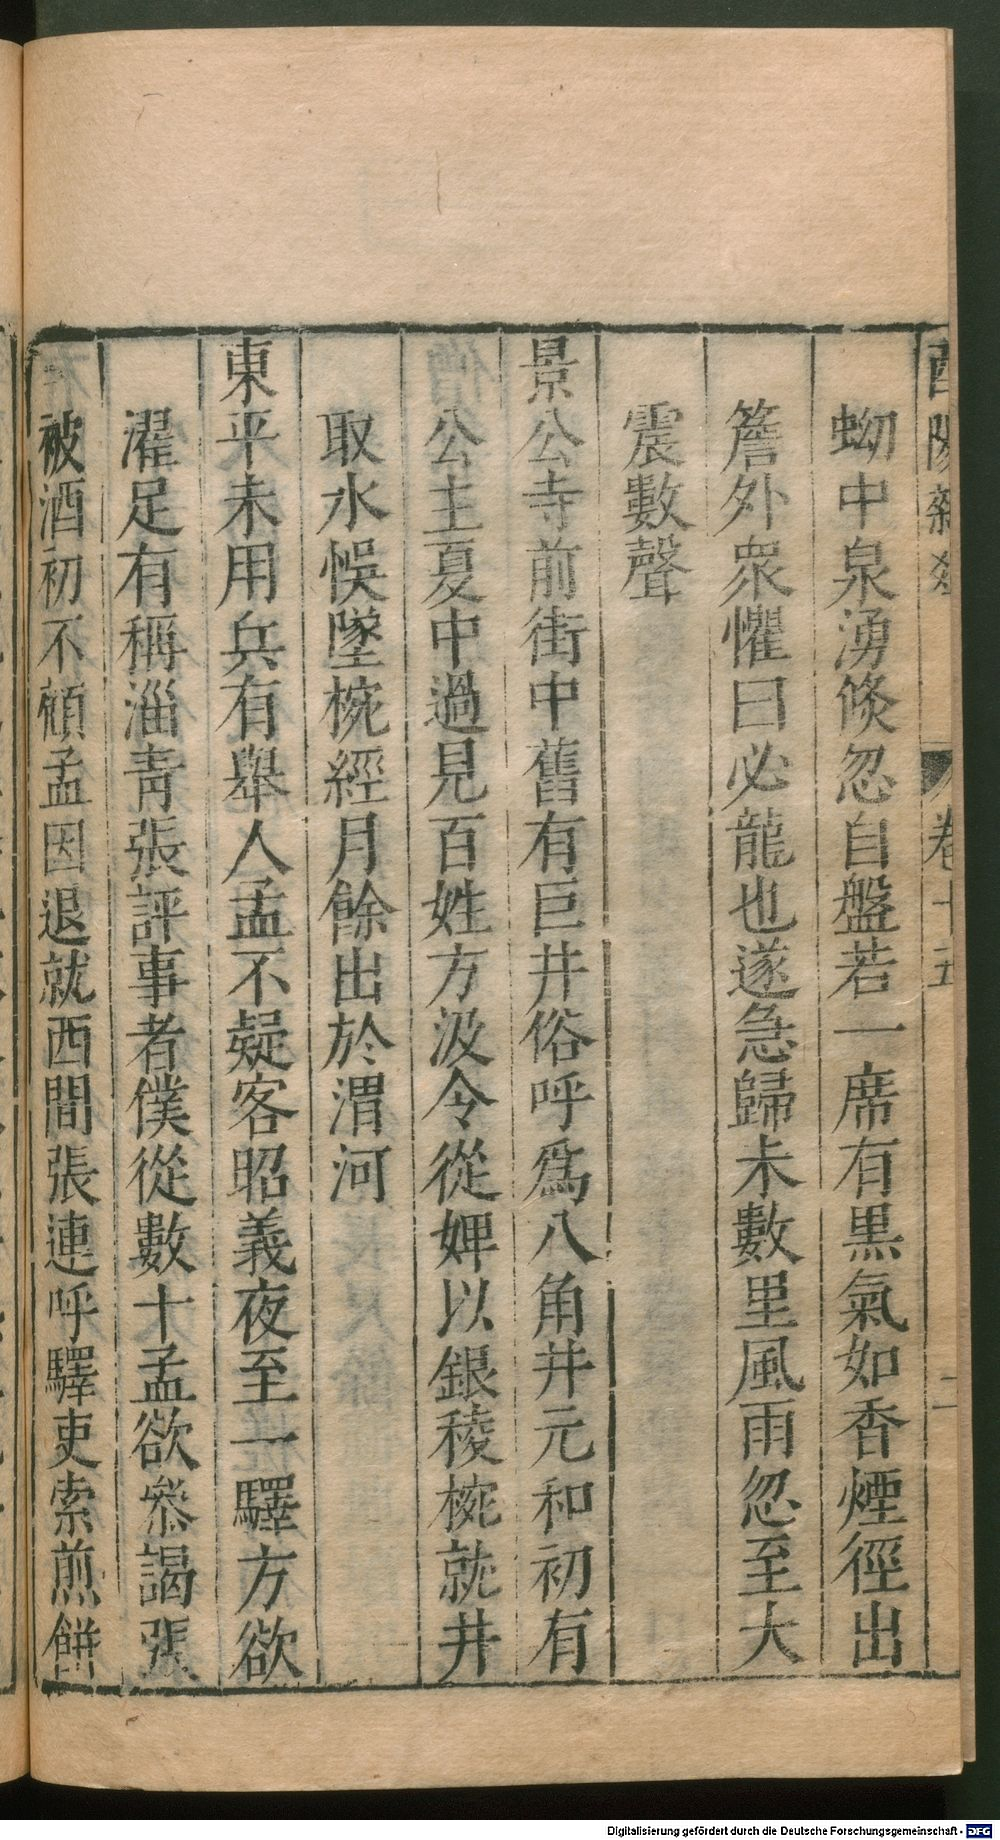 酉陽雜俎 卷十五 二
蚴中泉湧倐忽自盤若一席有黒氣如香煙徑出
簷外衆懼曰必龍也遂急歸未數里風雨忽至大
震數聲
景公寺前街中舊有巨井俗呼爲八角井元和初有
公主夏中過見百姓方汲令從婢以銀稜椀就井
取水悞墜椀經月餘出於渭河
東平未用兵有舉人孟不疑客昭義夜至一驛方欲
濯足有稱淄青張評事者僕從數十孟欲叅謁張
被酒初不顧孟因退就西間張連呼驛吏索煎餅
Digitalisierung gefördert durch die Deutsche Forschungsgemeinschaft - DFG